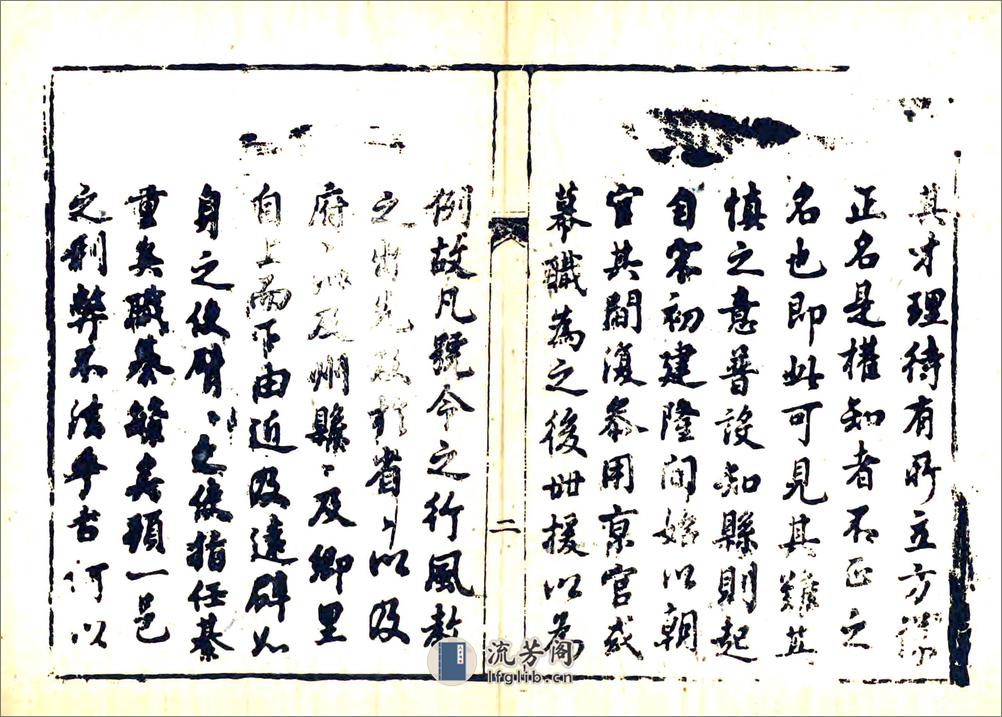 其才理待有所立方得
正名是權知者不正之
名也即此可見其難其
慎之意普設知縣則起
自宋初建隆間始以朝
官其間復參用京官或
幕職為之後世援以為
二
例故凡號令之行風教
之出先及於省〻以及
府〻州及州縣〻及鄉里
自上而下由近及遠辟如
身之使臂〻之使指任綦
重矣職綦繁矣頊一邑
之利弊不法乎古何以
流芳阁
lfglib.cn